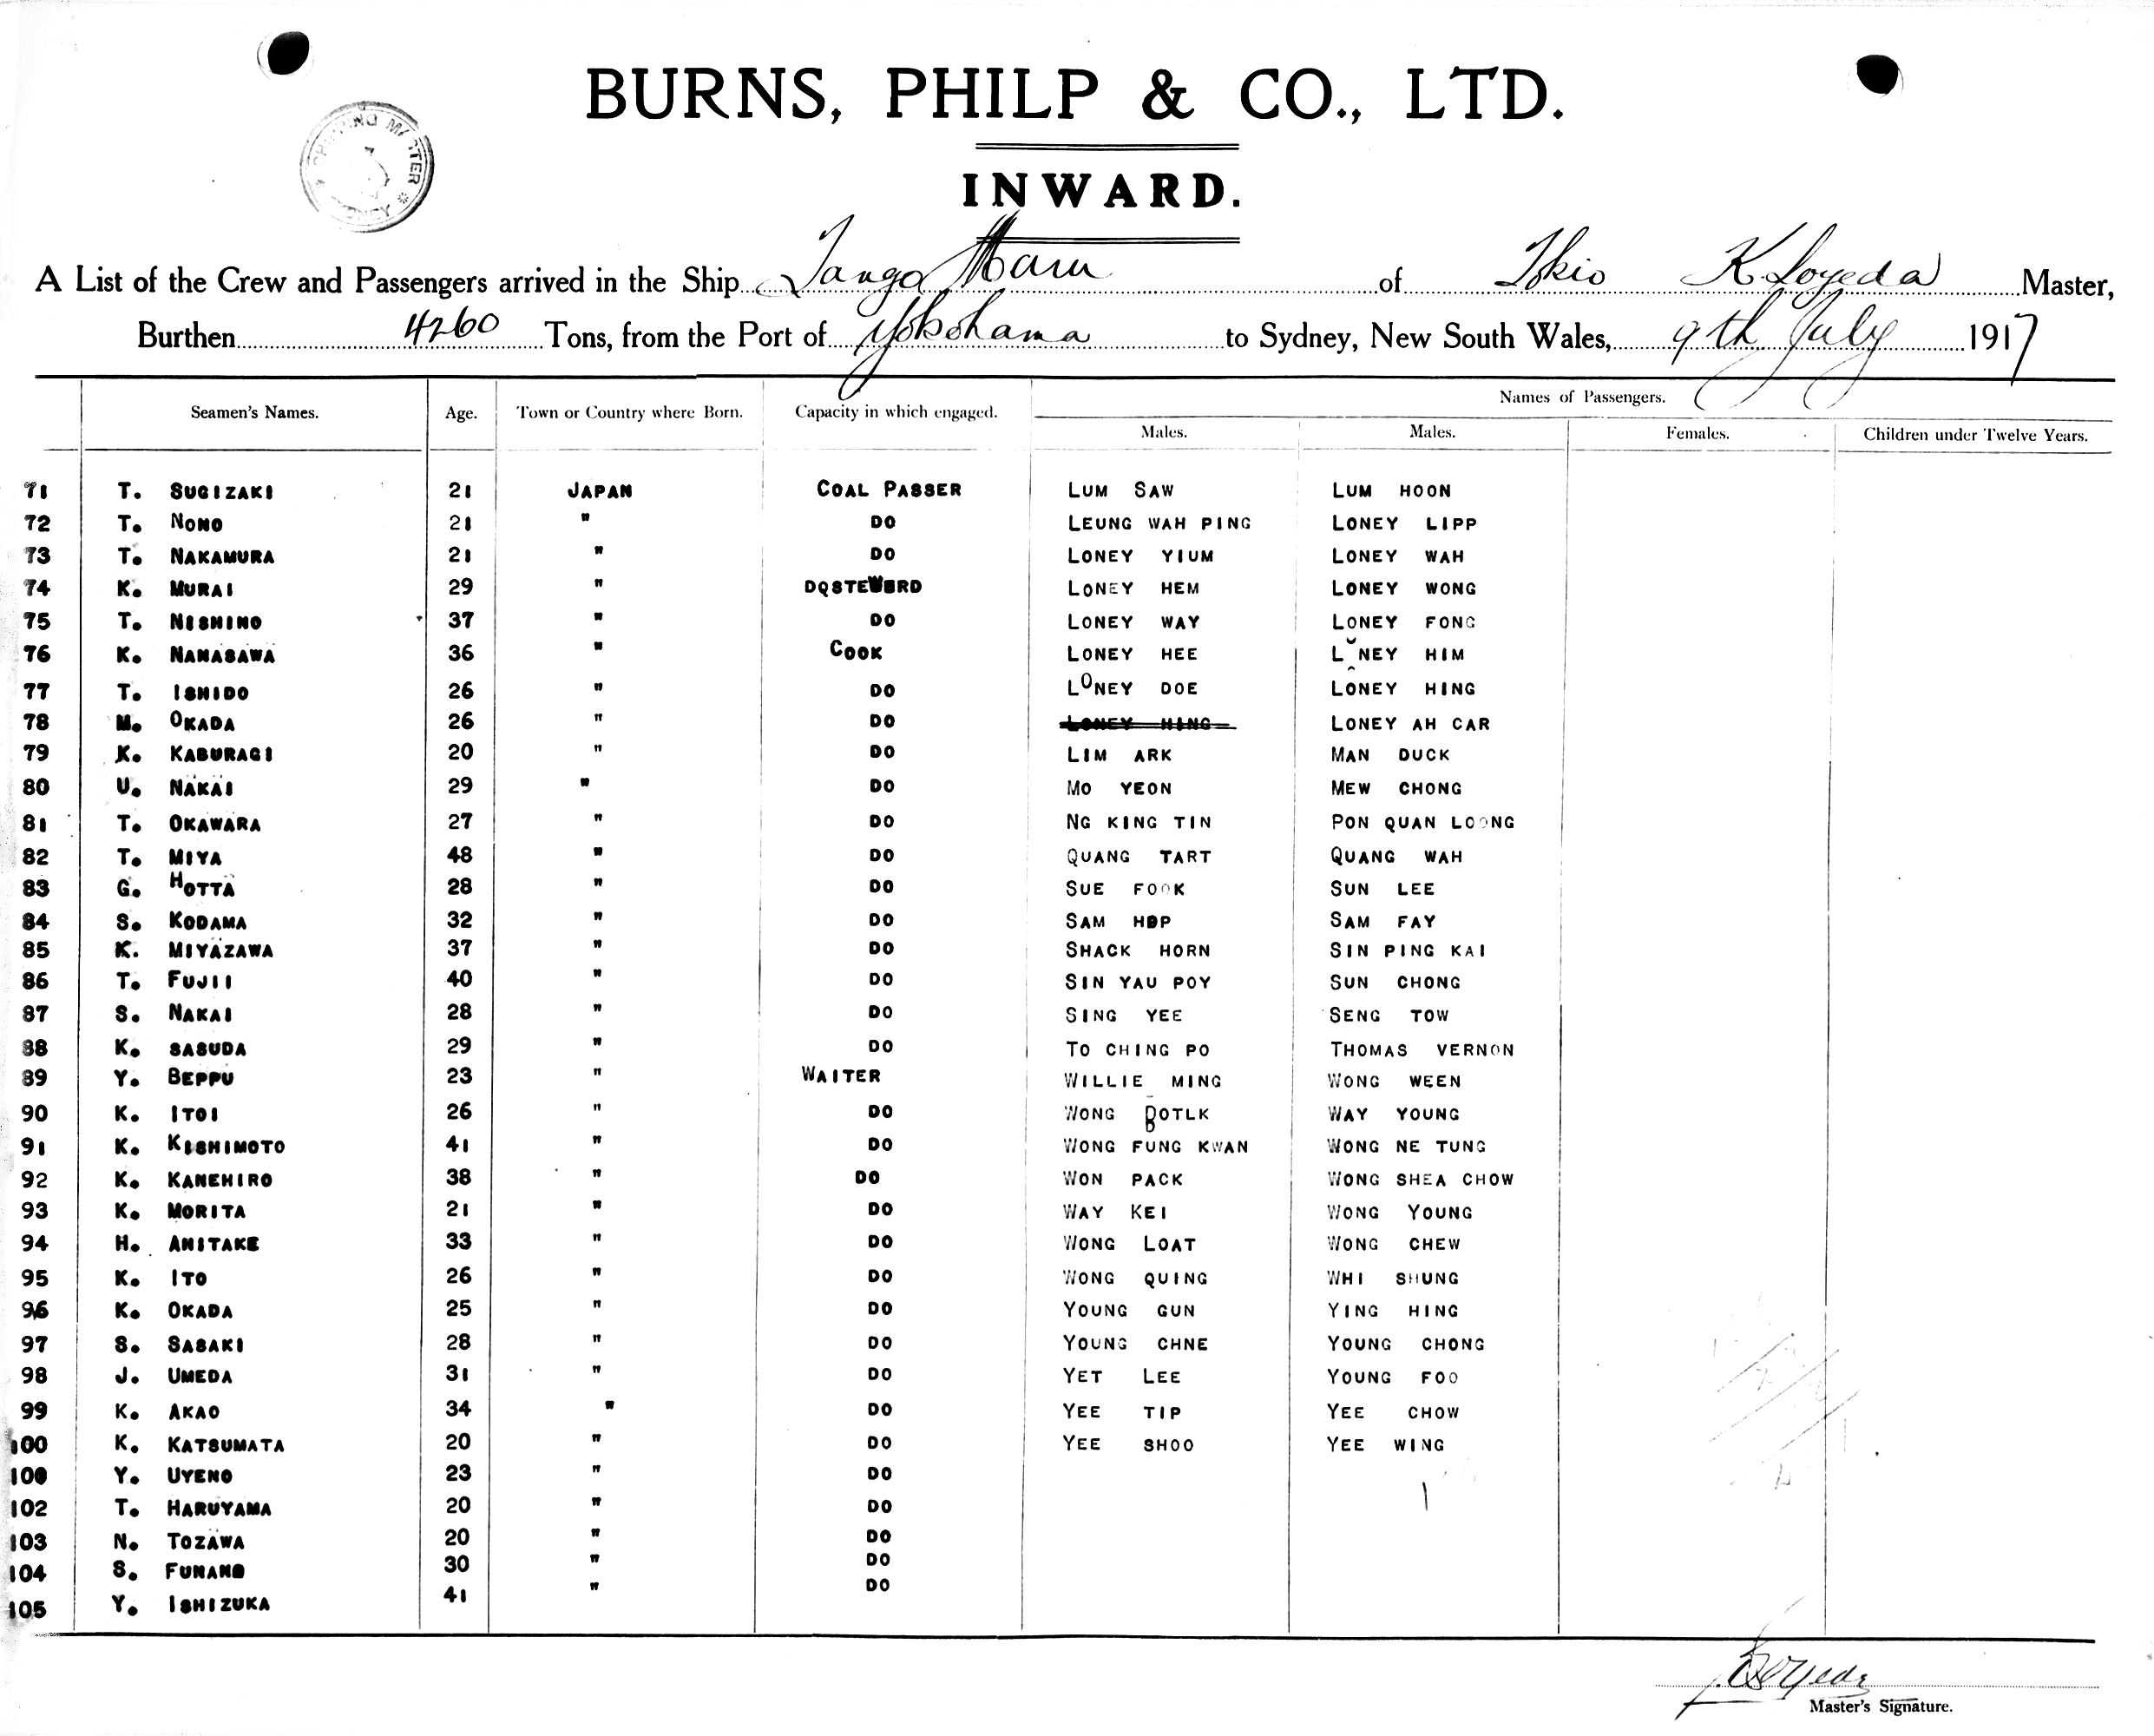 BURNS, PHILP & CO., LTD.
INWARD.
A List of the Crew and Passengers arrived in the Ship Tango Maru of Tokio K. Soyeda Master,
Burthen 4260 Tons, from the Port of Yokohama to Sydney, New South Wales, 9th July 1917
Names of Passengers.
Seamen's Names. Age. Town or Country where Born. Capacity in which engaged. Males. Males. Females. Children under Twelve Years.
71 T. SUGIZAKI 21 JAPAN COAL PASSER LUM SAW LUM HOON
72 T. NONO 21 " DO LEUNG WAH PING LONEY LIPP
73 T. NAKAMURA 21 " DO LONEY YIUM LONEY WAH
74 K. MURAI 29 " LONEY HEM LONEY WONG
75 T. NISHINO 37 " DO LONEY WAY LONEY FONG
76 K. NANASAWA 36 " COOK LONEY HEE LONEY HIM
77 T. ISHIDO 26 " DO LONEY DOE LONEY HING
78 M. OKADA 26 " DO LONEY HING LONEY AH CAR
79 K. KABURAGI 20 " DO LIM ARK MAN DUCK
80 U. NAKAI 29 " DO MO YEON MEW CHONG
81 T. OKAWARA 27 " DO NG KING TIN PON QUAN LOONG
82 T. MIYA 48 " DO QUANG TART QUANG WAH
83 G. HOTTA 28 " DO SUE FOOK SUN LEE
84 S. KODAMA 32 " DO SAM HOP SAM FAY
85 K. MIYAZAWA 37 " DO SHACK HORN SIN PING KAI
86 T. FUJII 40 " DO SIN YAU POY SUN CHONG
87 S. NAKAI 28 " DO SING YEE SENG TOW
88 K. SASUDA 29 " DO TO CHING PO THOMAS VERNON
89 Y. BEPPU 23 " WAITER WILLIE MING WONG WEEN
90 K. ITOI 26 " DO WONG WAY YOUNG
91 K. KISHIMOTO 41 " DO WONG FUNG KWAN WONG NE TUNG
92 K. KANEHIRO 38 " DO WON PACK WONG SHEA CHOW
93 K. MORITA 21 " DO WAY KEI WONG YOUNG
94 H. ANITAKE 33 " DO WONG LOAT WONG CHEW
95 K. ITO 26 " DO WONG QUING WHI SHUNG
96 K. OKADA 25 " DO YOUNG GUN YING HING
97 S. SASAKI 28 " DO YOUNG CHNE YOUNG CHONG
98 J. UMEDA 31 " DO YET LEE YOUNG FOO
99 K. AKAO 34 " DO YEE TIP YEE CHOW
100 K. KATSUMATA 20 " DO YEE SHOO YEE WING
100 Y. UYENO 23 " DO
102 T. HARUYAMA 20 " DO
103 N. TOZAWA 20 " DO
104 S. FUNANO 30 " DO
105 Y. ISHIZUKA 41 " DO
Master's Signature.